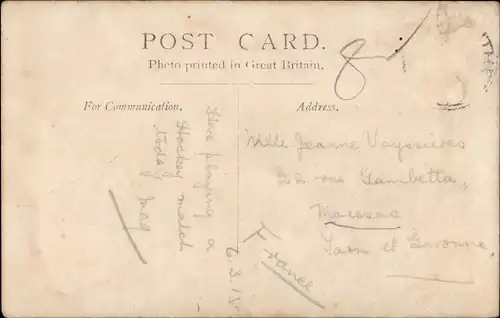 POST CARD.
Photo printed in Great Britain.
For Communication.
Address.
8
Live playing a
Hockey match
today
Meg
6.3.15
Mlle Jeanne Vayssières
22 rue Gambetta,
Moissac
Tarn et Garonne,
France